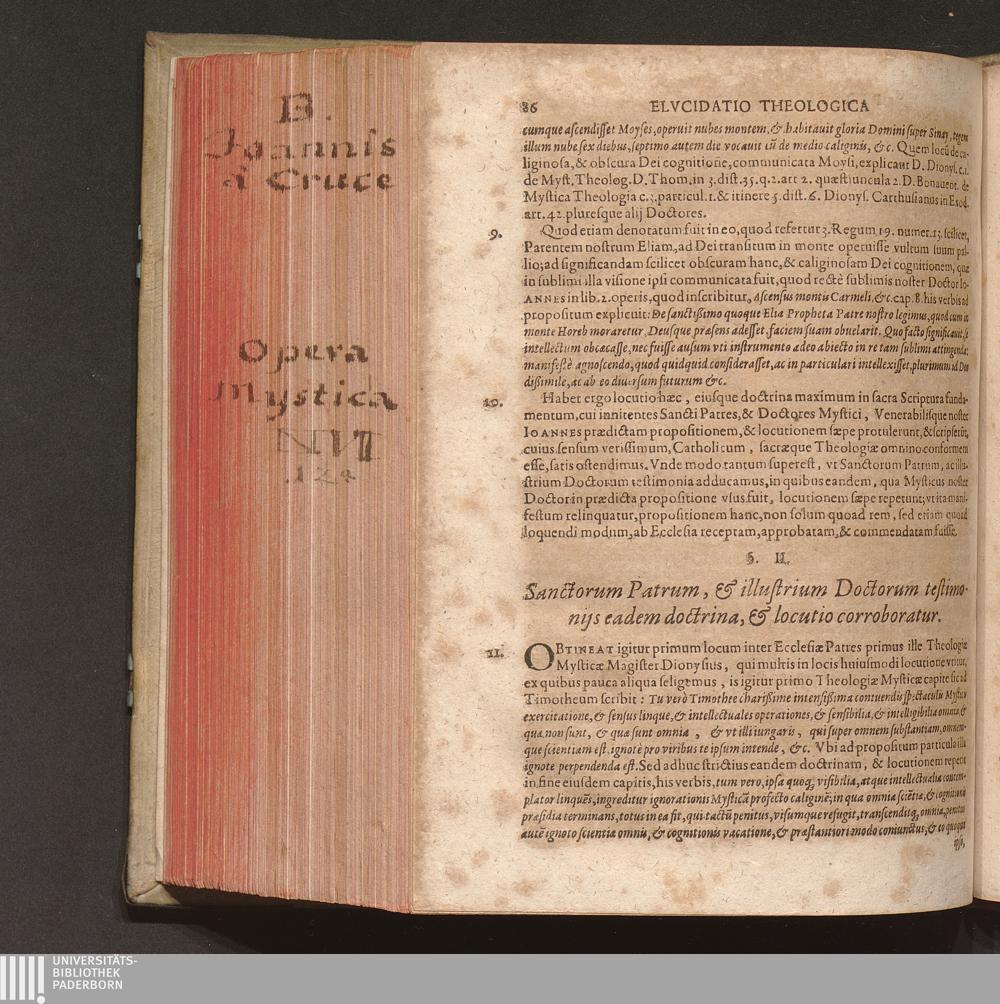 B.
Joannis
à Cruce
Opera
Mystica
NVI
124
86 ELVCIDATIO THEOLOGICA
cumque ascendisset Moyses, operuit nubes montem, & habitauit gloria Domini super Sinay, tegens
illum nube sex diebus, septimo autem die vocauit eũ de medio caliginis, &c. Quem locũ de ca-
liginosa, & obscura Dei cognitione, communicata Moysi, explicant D. Dionys. c. 1.
de Myst. Theolog. D. Thom. in 3. dist. 35. q. 2. art 2. quæstiuncula 2. D. Bonauent. de
Mystica Theologia c. 3. particul. 1. & itinere 5. dist. 6. Dionys. Carthusianus in Exod.
art. 42. pluresque alij Doctores.
9. Quod etiam denotatum fuit in eo, quod refertur 3. Regum 19. numer. 13. scilicet,
Parentem nostrum Eliam, ad Dei transitum in monte operuisse vultum suum pal-
lio; ad significandam scilicet obscuram hanc, & caliginosam Dei cognitionem, quæ
in sublimi illa visione ipsi communicata fuit, quod rectè sublimis noster Doctor Io-
ANNES in lib. 2. operis, quod inscribitur, Ascensus montis Carmeli, &c. cap. 8. his verbis ad
propositum explicuit: De sanctißimo quoque Elia Propheta Patre nostro legimus, quod cum in
monte Horeb moraretur, Deusque præsens adesset, faciem suam obuelarit. Quo facto significauit, se
intellectum obcæcasse, nec fuisse ausum vti instrumento adeo abiecto in re tam sublimi attingenda:
manifestè agnoscendo, quod quidquid considerasset, ac in particulari intellexisset, plurimum id Deo
dißimile, ac ab eo diuersum futurum &c.
10. Habet ergo locutio hæc, eiusque doctrina maximum in sacra Scriptura funda-
mentum, cui innitentes Sancti Patres, & Doctores Mystici, Venerabilisque noster
IOANNES prædictam propositionem, & locutionem sæpe protulerunt, & scripserũt,
cuius sensum verissimum, Catholicum, sacræque Theologiæ omnino conformem
esse, satis ostendimus. Vnde modo tantum superest, vt Sanctorum Patrum, ac illu-
strium Doctorum testimonia adducamus, in quibus eandem, qua Mysticus noster
Doctor in prædicta propositione vsus fuit, locutionem sæpe repetunt; vt ita mani-
festum relinquatur, propositionem hanc, non solum quoad rem, sed etiam quoad
loquendi modum, ab Ecclesia receptam, approbatam, & commendatam fuisse.
§. II.
Sanctorum Patrum, & illustrium Doctorum testimo-
nijs eadem doctrina, & locutio corroboratur.
11. OBTINEAT igitur primum locum inter Ecclesiæ Patres primus ille Theologiæ
Mysticæ Magister Dionysius, qui multis in locis huiusmodi locutione vtitur,
ex quibus pauca aliqua seligemus, is igitur primo Theologiæ Mysticæ capite sic ad
Timotheum scribit: Tu verò Timothee charißime intensißima contuendis spectaculis Mysticis
exercitatione, & sensus linque, & intellectuales operationes, & sensibilia, & intelligibilia omnia, &
quæ non sunt, & quæ sunt omnia, & vt illi iungaris, qui super omnem substantiam, omnem-
que scientiam est, ignotè pro viribus te ipsum intende, &c. Vbi ad propositum particula illa
ignote perpendenda est. Sed adhuc strictius eandem doctrinam, & locutionem repetit
in fine eiusdem capitis, his verbis, tum vero, ipsa quoq, visibilia, atque intellectualia contem-
plator linquẽs, ingreditur ignorationis Mysticã profecto caliginẽ; in qua omnia sciẽtiæ, & cognitionis
præsidia terminans, totus in ea fit, qui tactũ penitus, visumque refugit, transcenditq, omnia, penitus
autẽ ignoto scientiæ omnis, & cognitionis vacatione, & præstantiori modo coniunctus, & eo quoque
ipso,
UNIVERSITÄTS-
BIBLIOTHEK
PADERBORN